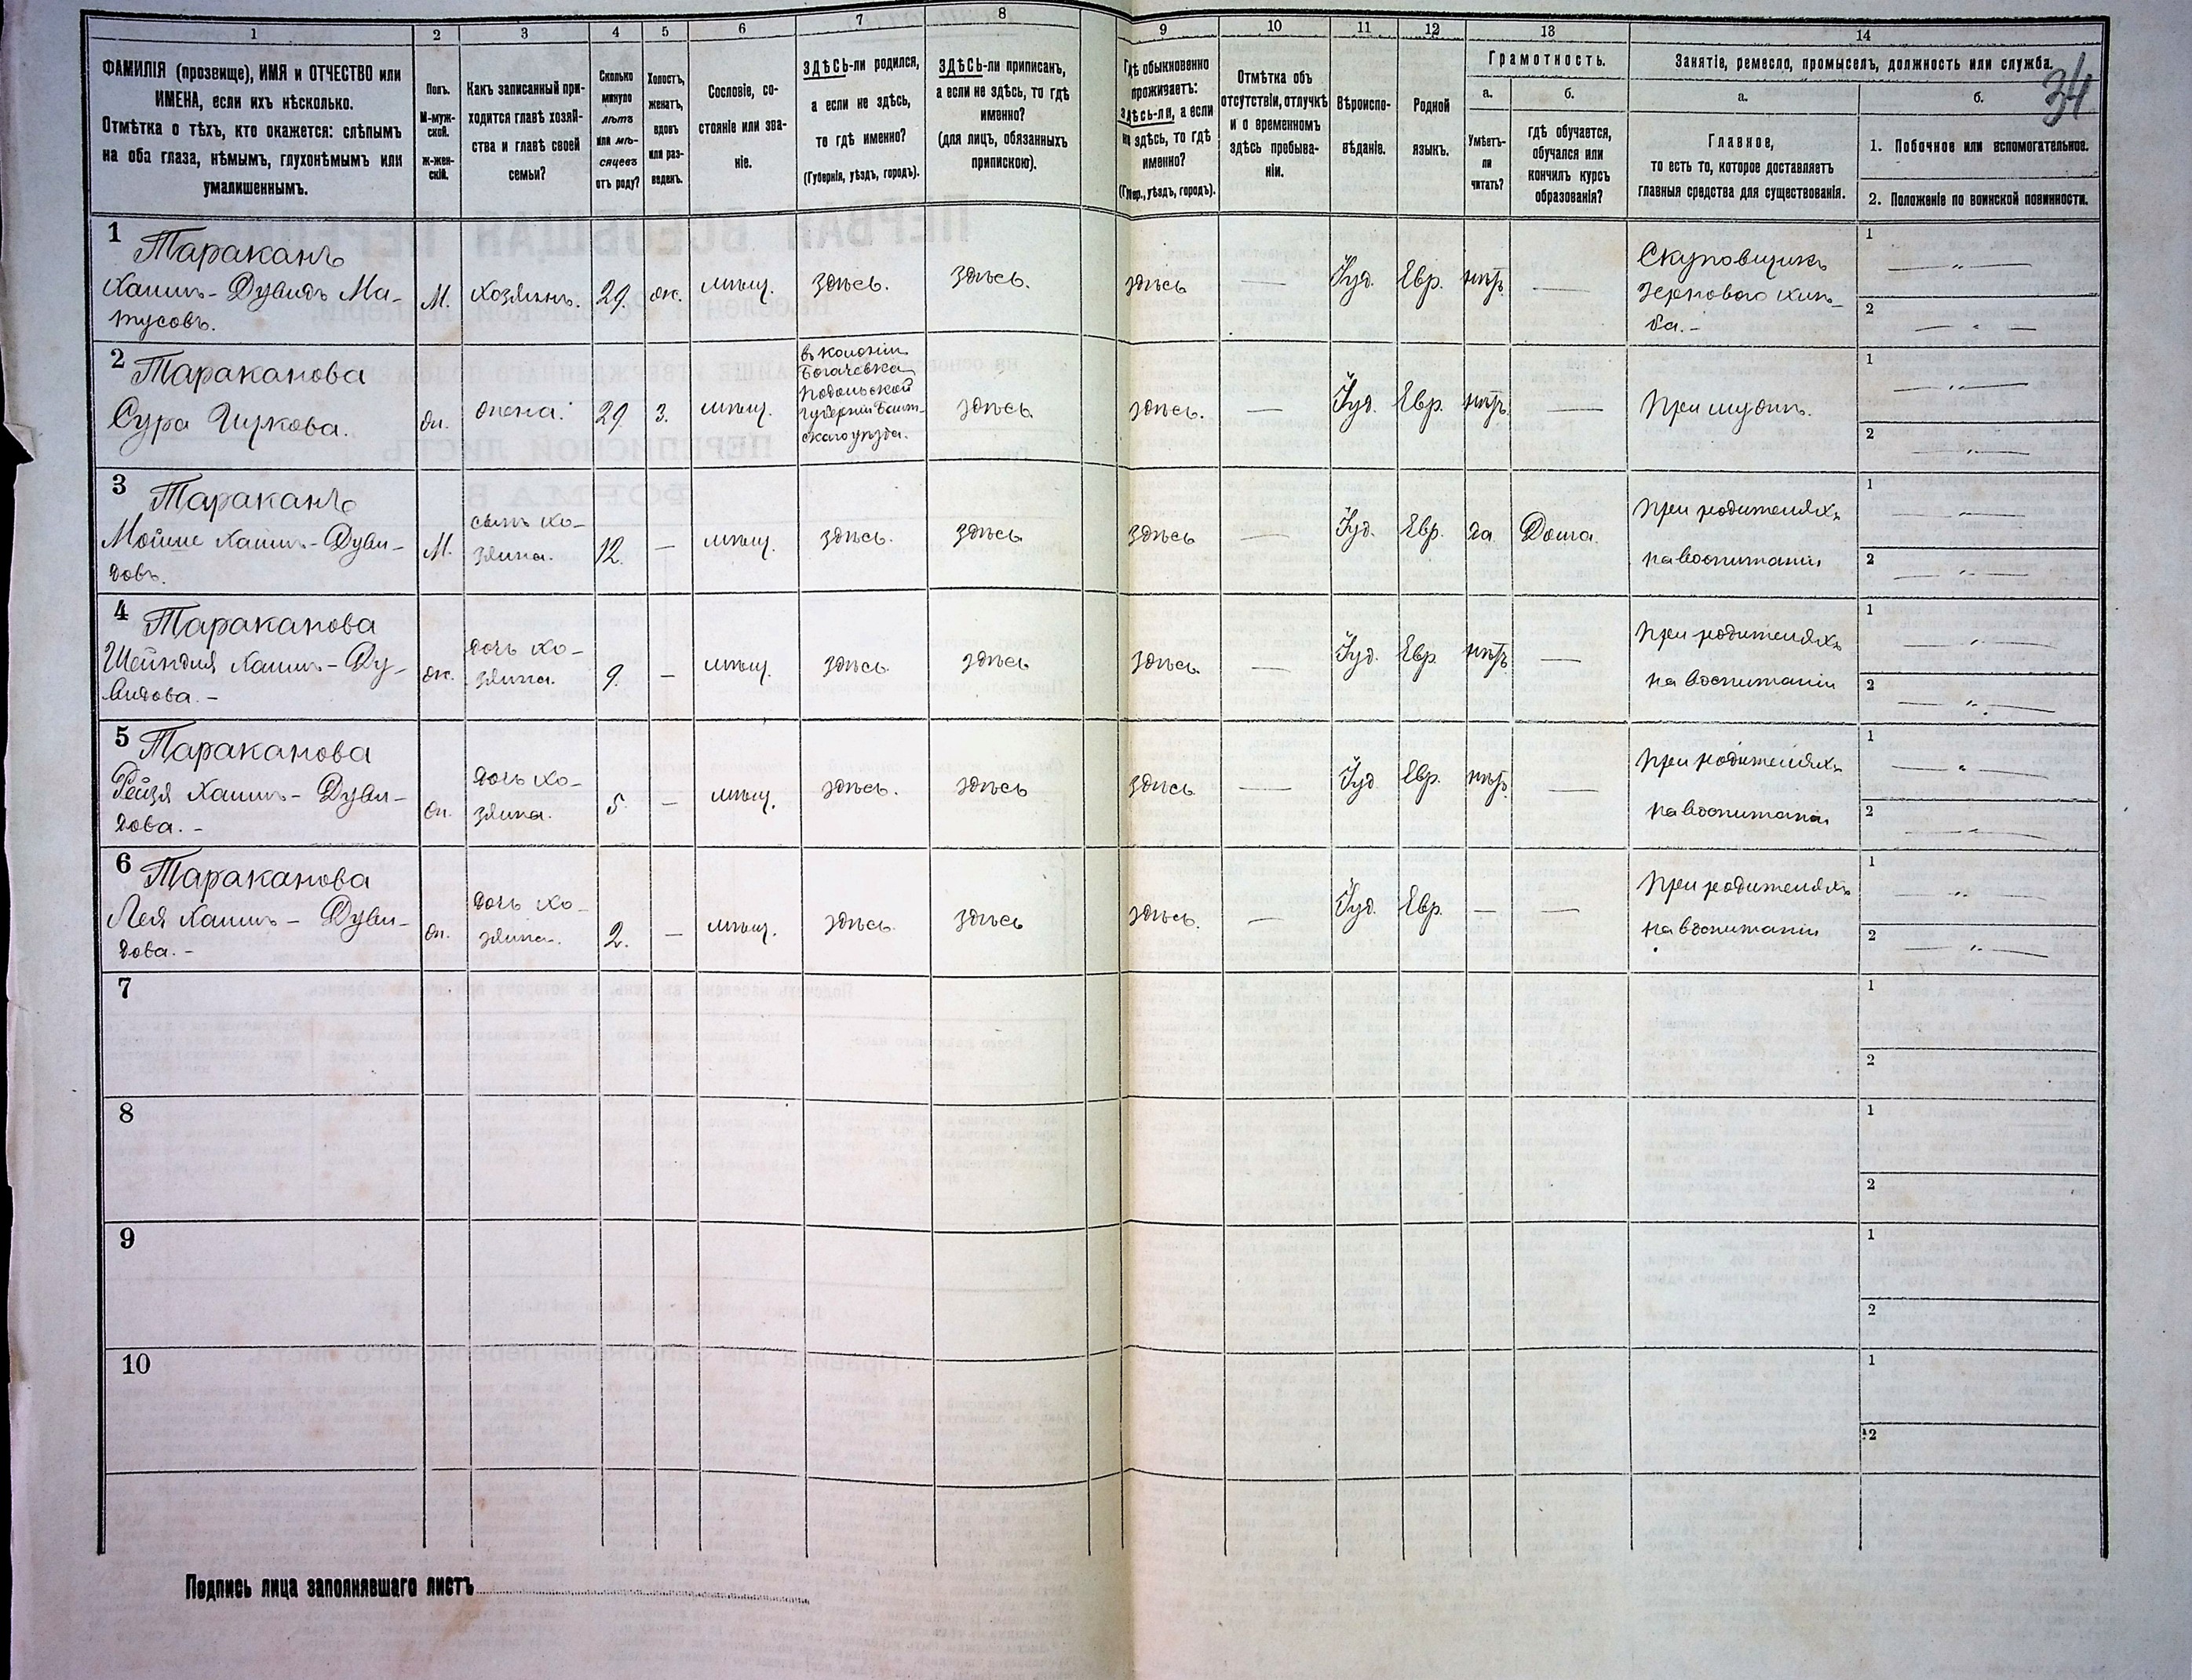 1 2 3 4 5 6 7 8 9 10 11 12 13 14
ФАМИЛІЯ (прозвище), ИМЯ и ОТЧЕСТВО или
ИМЕНА, если ихъ нѣсколько.
Отмѣтка о тѣхъ, кто окажется: слѣпымъ
на оба глаза, нѣмымъ, глухонѣмымъ или
умалишеннымъ.
Полъ.
М-муж-
ской.
ж-жен-
скій.
Какъ записанный при-
ходится главѣ хозяй-
ства и главѣ своей
семьи?
Сколько
минуло
лѣтъ
или мѣ-
сяцевъ
отъ роду?
Холостъ,
женатъ,
вдовъ
или раз-
веденъ.
Сословіе, со-
стояніе или зва-
ніе.
ЗДѢСЬ-ли родился,
а если не здѣсь,
то гдѣ именно?
(Губернія, уѣздъ, городъ).
ЗДѢСЬ-ли приписанъ,
а если не здѣсь, то гдѣ
именно?
(для лицъ, обязанныхъ
припискою).
Гдѣ обыкновенно
проживаетъ:
здѣсь-ли, а если
не здѣсь, то гдѣ
именно?
(Губер., уѣздъ, городъ).
Отмѣтка объ
отсутствіи, отлучкѣ
и о временномъ
здѣсь пребыва-
ніи.
Вѣроиспо-
вѣданіе.
Родной
языкъ.
Грамотность.
а.
Умѣетъ-
ли
читать?
б.
гдѣ обучается,
обучался или
кончилъ курсъ
образованія?
Занятіе, ремесло, промыселъ, должность или служба.
34
а.
Главное,
то есть то, которое доставляетъ
главныя средства для существованія.
б.
1. Побочное или вспомогательное.
2. Положеніе по воинской повинности.
1 Тараканъ
Хаимъ-Дувидъ Ма-
тусовъ.
М. хозяинъ. 29. ж. мѣщ. здѣсь. здѣсь. здѣсь — Іуд. Евр. нѣтъ —
Скуповщикъ
зернового хлѣ-
ба.-
1 — " —
2 — " —
2 Тараканова
Сура Ицкова.
ж. жена. 29 з. мѣщ.
въ колоніи
Богачевка
Подольской
губерніи Балт-
скаго уѣзда.
здѣсь здѣсь. — Іуд. Евр. нѣтъ — При мужѣ.
1 — " —
2 — " —
3 Тараканъ
Мойше Хаимъ-Дуви-
довъ.
М. сынъ хо-
зяина.
12. — мѣщ. здѣсь. здѣсь здѣсь — Іуд. Евр. да Дома.
при родителяхъ
на воспитаніи
1 — " —
2 — " —
4 Тараканова
Шейндля Хаимъ-Ду-
видова.-
ж. дочь хо-
зяина.
9. — мѣщ. здѣсь здѣсь здѣсь — Іуд. Евр. нѣтъ —
при родителяхъ
на воспитаніи
1 — " —
2 — " —
5 Тараканова
Рейзя Хаимъ-Дуви-
дова.-
ж. дочь хо-
зяина.
5 — мѣщ. здѣсь. здѣсь здѣсь — Іуд Евр. нѣтъ —
при родителяхъ
на воспитаніи
1 — " —
2 — " —
6 Тараканова
Лея Хаимъ-Дуви-
дова.-
ж. дочь хо-
зяина.
2. — мѣщ. здѣсь здѣсь здѣсь. — Іуд. Евр. — —
при родителяхъ
на воспитаніи
1 — " —
2 — " —
7 1
2
8 1
2
9 1
2
10 1
2
Подпись лица заполнявшаго листъ